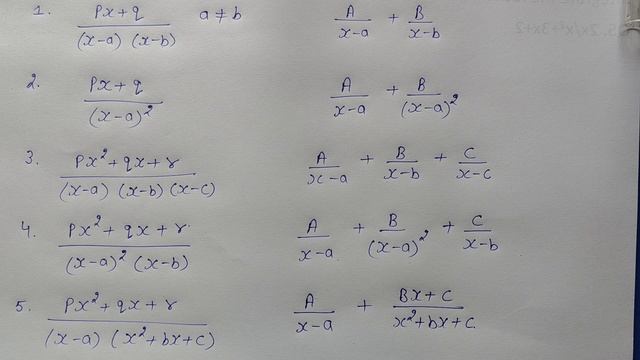 1. px+q/(x-a) (x-b) a ≠ b A/x-a + B/x-b
2. px+q/(x-a)² A/x-a + B/(x-a)²
3. px²+qx+r/(x-a) (x-b) (x-c) A/x-a + B/x-b + C/x-c
4. px²+qx+r/(x-a)² (x-b) A/x-a + B/(x-a)² + C/x-b
5. px²+qx+r/(x-a) (x²+bx+c) A/x-a + Bx+C/x²+bx+c